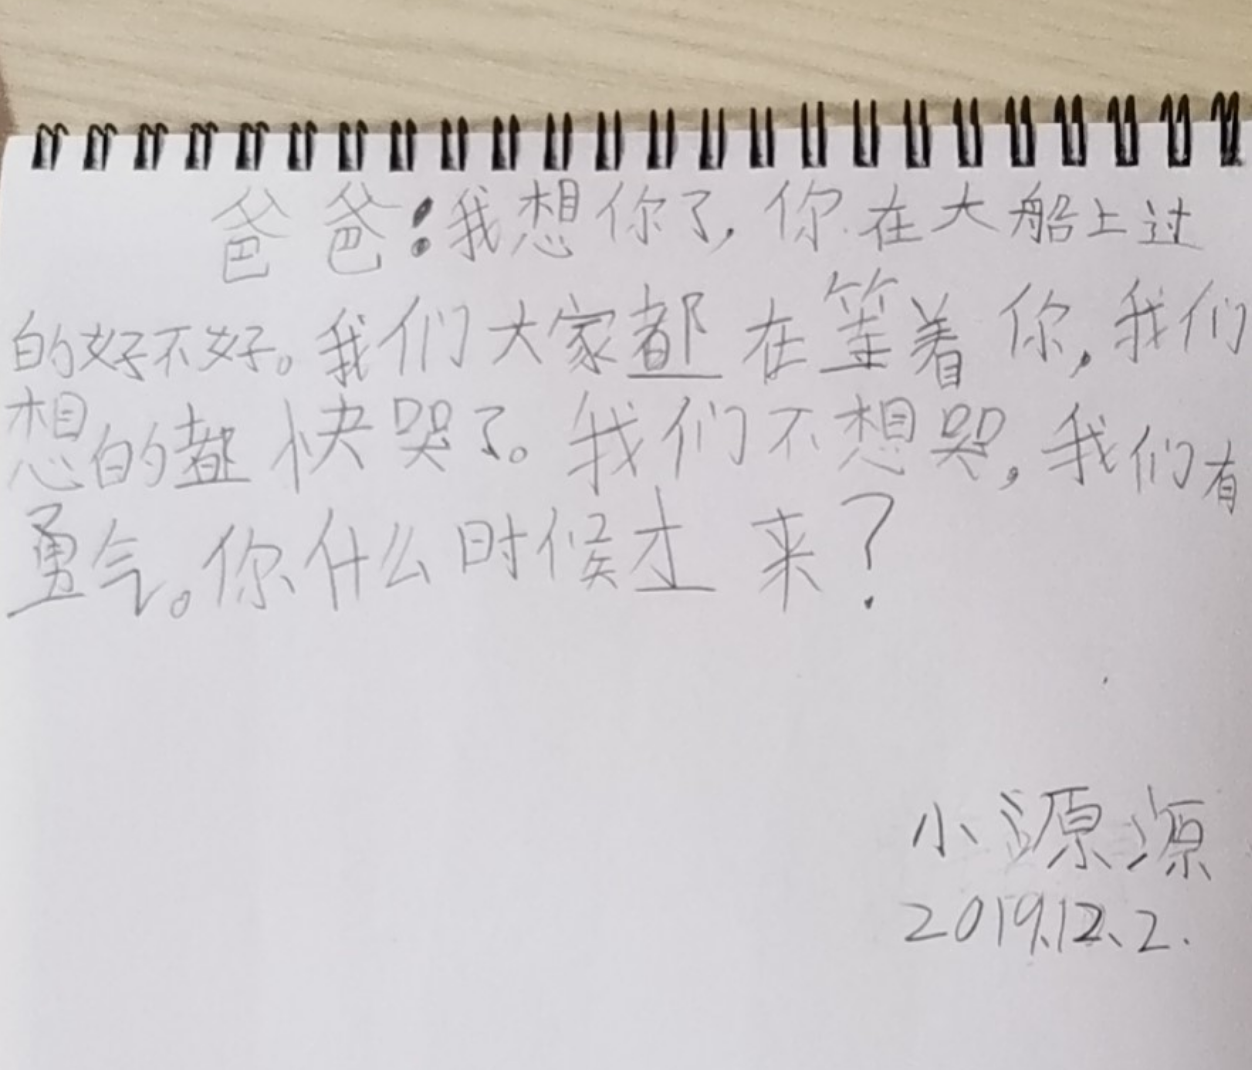 爸爸:我想你了,你在大船上过
的好不好。我们大家都在等着你,我们
想的都快哭了。我们不想哭,我们有
勇气。你什么时候才来?
小源源
2019.12、2.